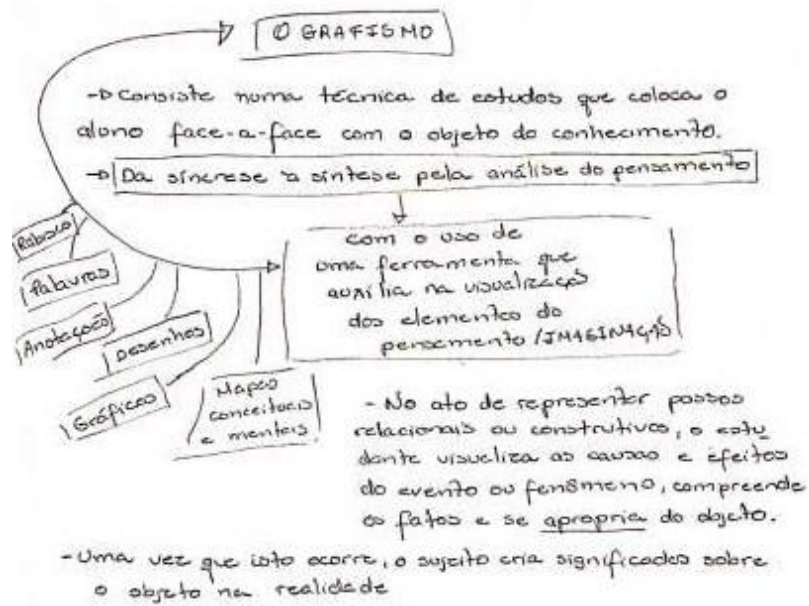 O GRAFISMO
→ Consiste numa técnica de estudos que coloca o
aluno face-a-face com o objeto do conhecimento.
→ Da síncrese à síntese pela análise do pensamento
com o uso de
uma ferramenta que
auxilia na visualização
dos elementos do
pensamento / IMAGINAÇÃO
Rabisco
Palavras
Anotações
Desenhos
Gráficos
Mapas
conceituais
e mentais
- No ato de representar passos
relacionais ou construtivos, o estu
dante visualiza as causas e efeitos
do evento ou fenômeno, compreende
os fatos e se apropria do objeto.
- Uma vez que isto ocorre, o sujeito cria significados sobre
o objeto na realidade